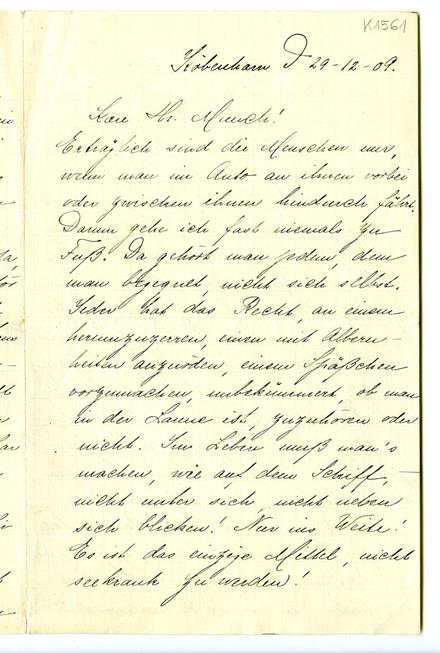 K1561
København D 29-12-09.
Kære Hr. Munch!
Erträglich sind die Menschen nur,
wenn man im Auto an ihnen vorbei
oder zwischen ihnen hindurch fährt.
Darum gehe ich fast niemals zu
Fuß. Da gehört man jedem, dem
man begegnet, nicht sich selbst.
Jeder hat das Recht, an einem
herumzuzerren, einen mit Albern-
heiten anzuöden, einem Späßchen
vorzumachen, unbekümmert, ob man
in der Laune ist, zuzuhören oder
nicht. Im Leben muß man's
machen, wie auf dem Schiff, –
nicht unter sich, nicht neben
sich blicken! Nur ins Weite!
Es ist das einzige Mittel, nicht
seekrank zu werden!